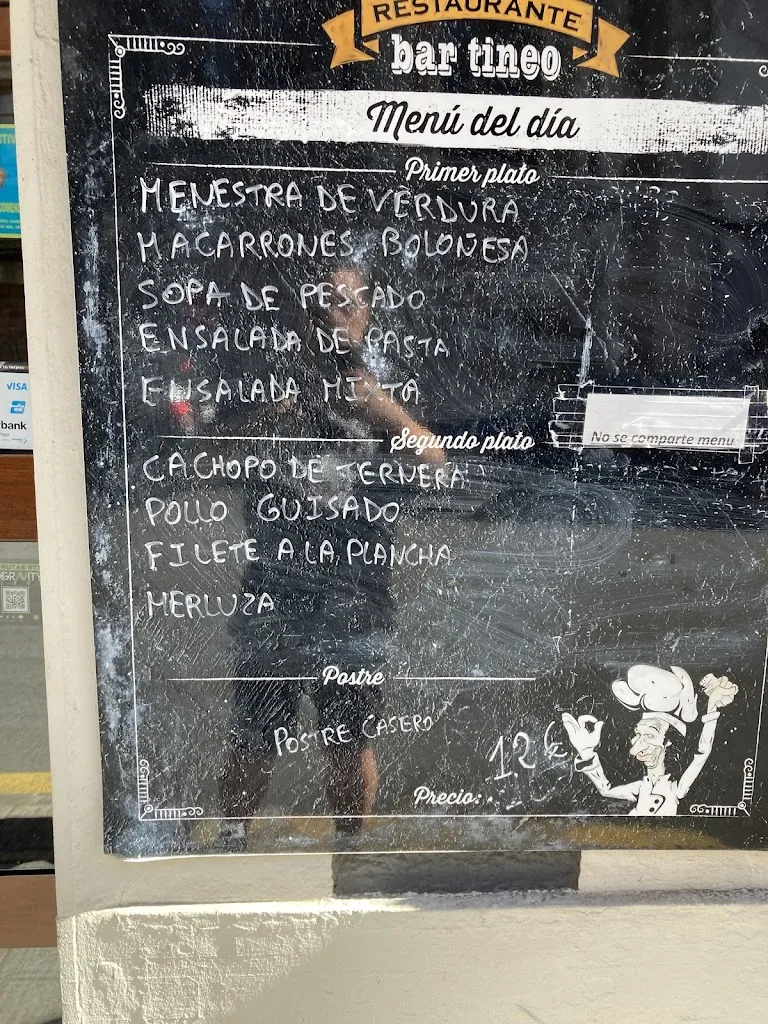 RESTAURANTE
bar tineo
Menú del día
Primer plato
MENESTRA DE VERDURA
MACARRONES BOLOÑESA
SOPA DE PESCADO
ENSALADA DE PASTA
ENSALADA MIXTA
No se comparte menu
Segundo plato
CACHOPO DE TERNERA
POLLO GUISADO
FILETE A LA PLANCHA
MERLUZA
Postre
POSTRE CASERO
12 €
Precio:
VISA
bank
GRAVITY